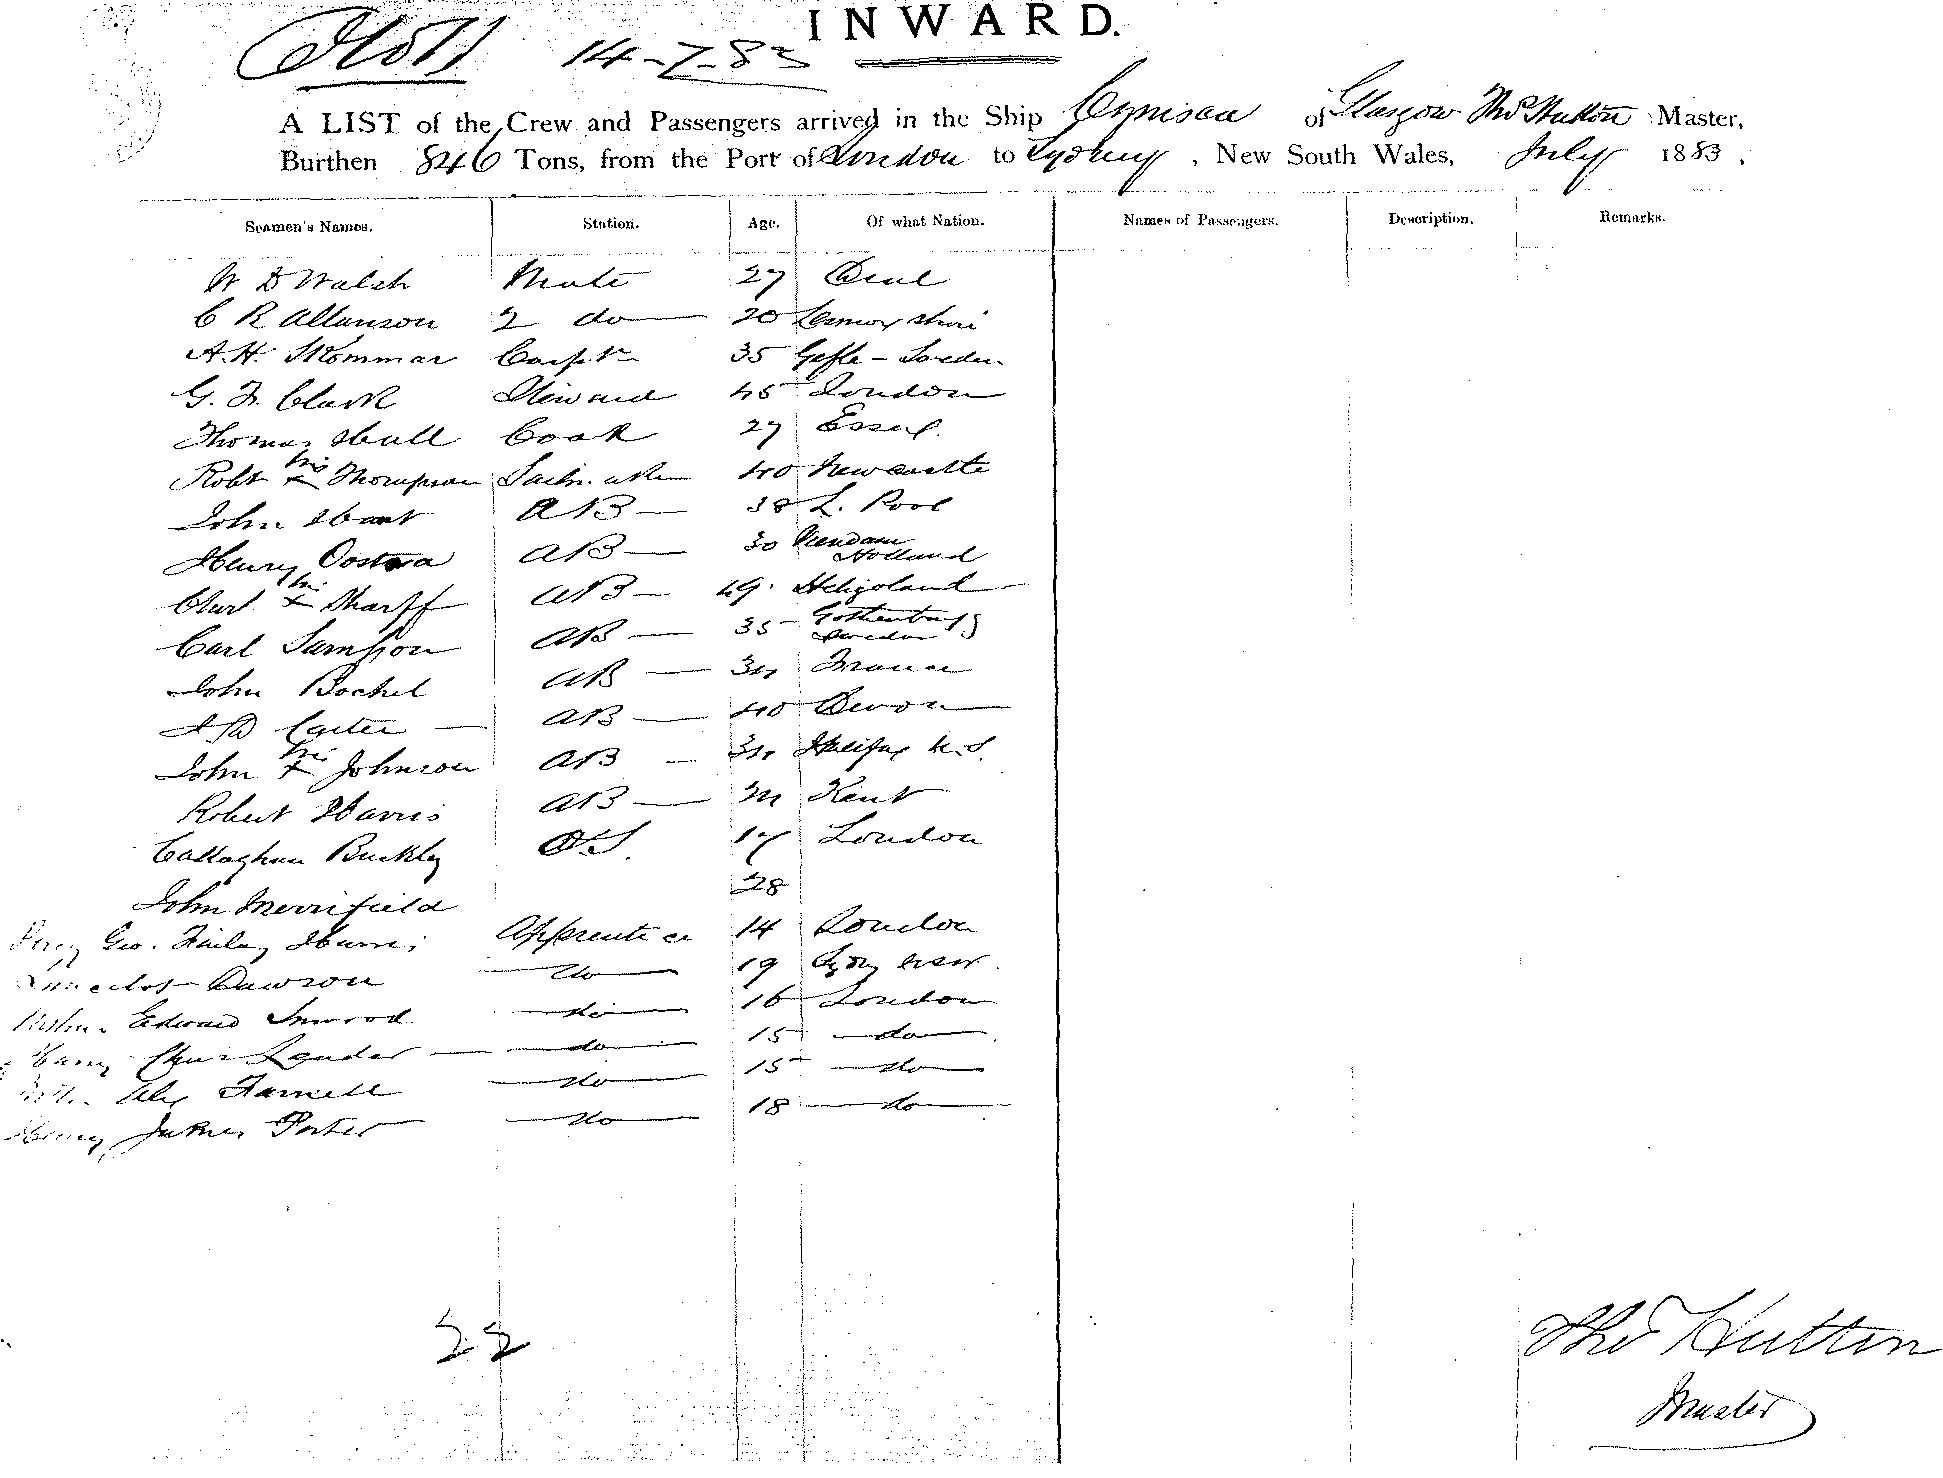 INWARD.
14-7-83
A LIST of the Crew and Passengers arrived in the Ship of Glasgow Thos Hutton Master,
Burthen 846 Tons, from the Port of London to Sydney, New South Wales, July 1883.
Seamen's Names. Station. Age. Of what Nation. Names of Passengers. Description. Remarks.
W D Walsh Mate 27 Deal
C R Allanson 2 do 20
A. H. Carptr 35 Gefle - Sweden
G. F. Clark Steward 45 London
Thomas Hull Cook 27 Essex.
Robt his x Thompson Sailmaker 40 Newcastle
John Hart AB 38 L. Pool
Henry Oostra AB 30 Veendam Holland
his x Sharff AB 49. Heligoland
Carl Sampson AB 35 Gothenburg Sweden
John Bochel AB 34 France
Carter AB 40 Devon
John his x Johnson AB 34 Halifax N.S.
Robert Harris AB Kent
Callaghan Buckley O.S. 17 London
John Merrifield 28
Percy Geo. Finlay Harris Apprentice 14 London
Lancelot Dawson do 19 Sydney NSW.
Edward Inwood do 16 London
Harry Chas Lander do 15 do
Alex Farnell do 15 do
Henry James Porter do 18 do
22
Thos Hutton
Master